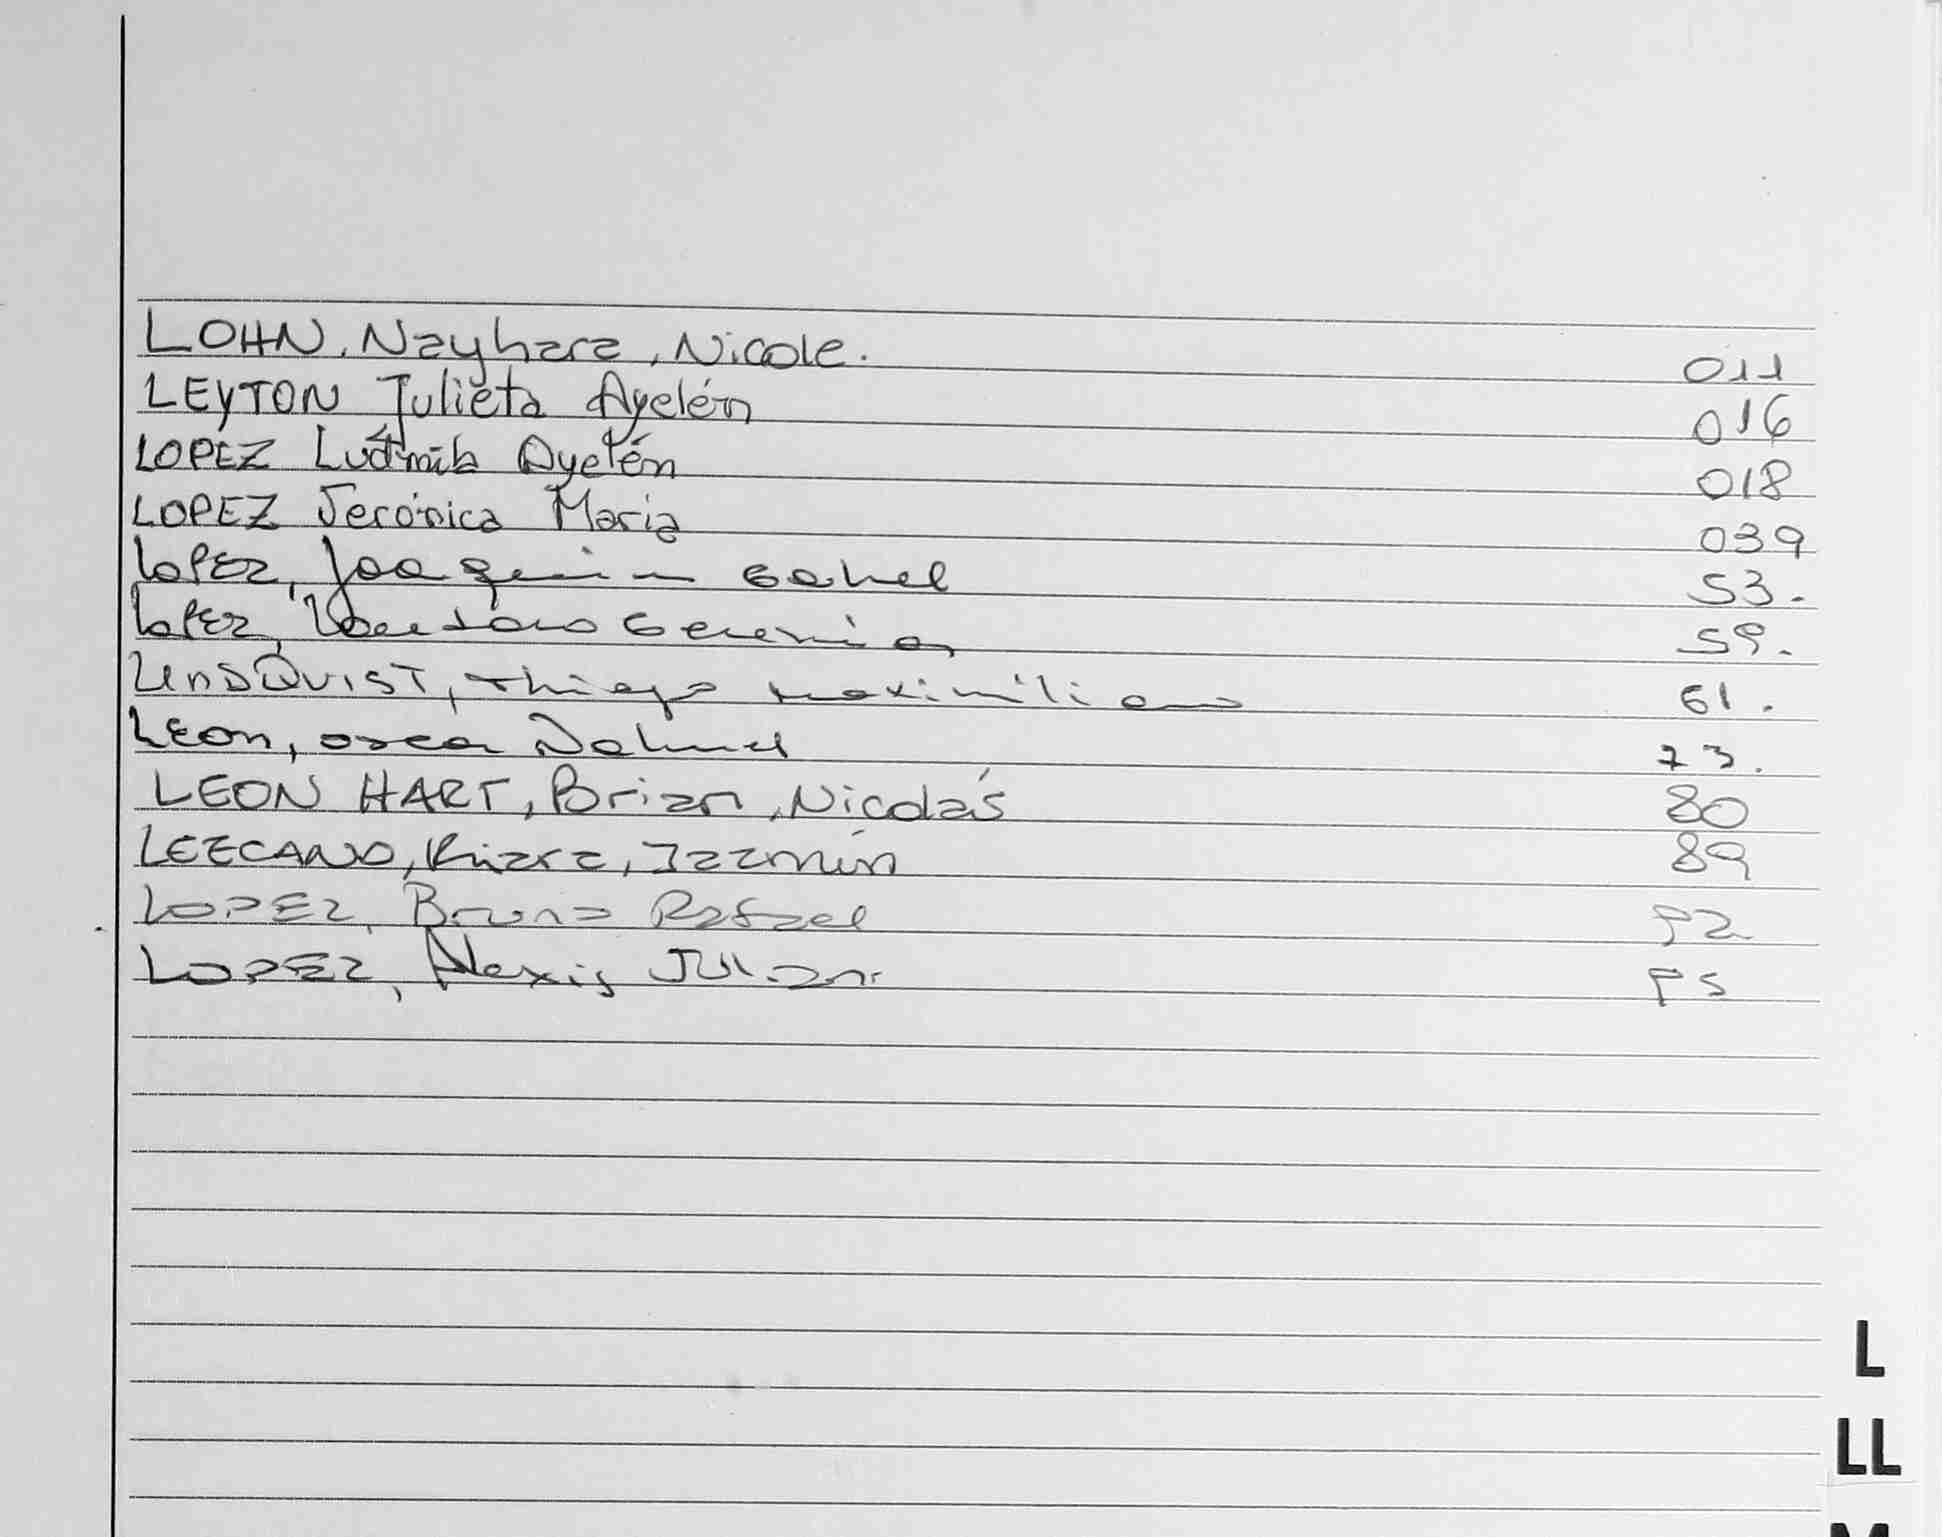 LOHN, Nayhara, Nicole. 011
LEYTON Julieta Ayelén 016
LOPEZ Ludmila Ayelén 018
LOPEZ Jerónica Maria 039
LOPEZ, Joaquin Gahel 53.
LOPEZ, Geremias 59.
LINDSQUIST, Thiago Maximiliano 61.
LEON, Oscar Nahuel 73.
LEON HART, Brian, Nicolás 80
LEZCANO, Kiara, Jazmín 89
LOPEZ, Bruno Rafael 92
LOPEZ, Alexis Julian. 95
L
LL
M